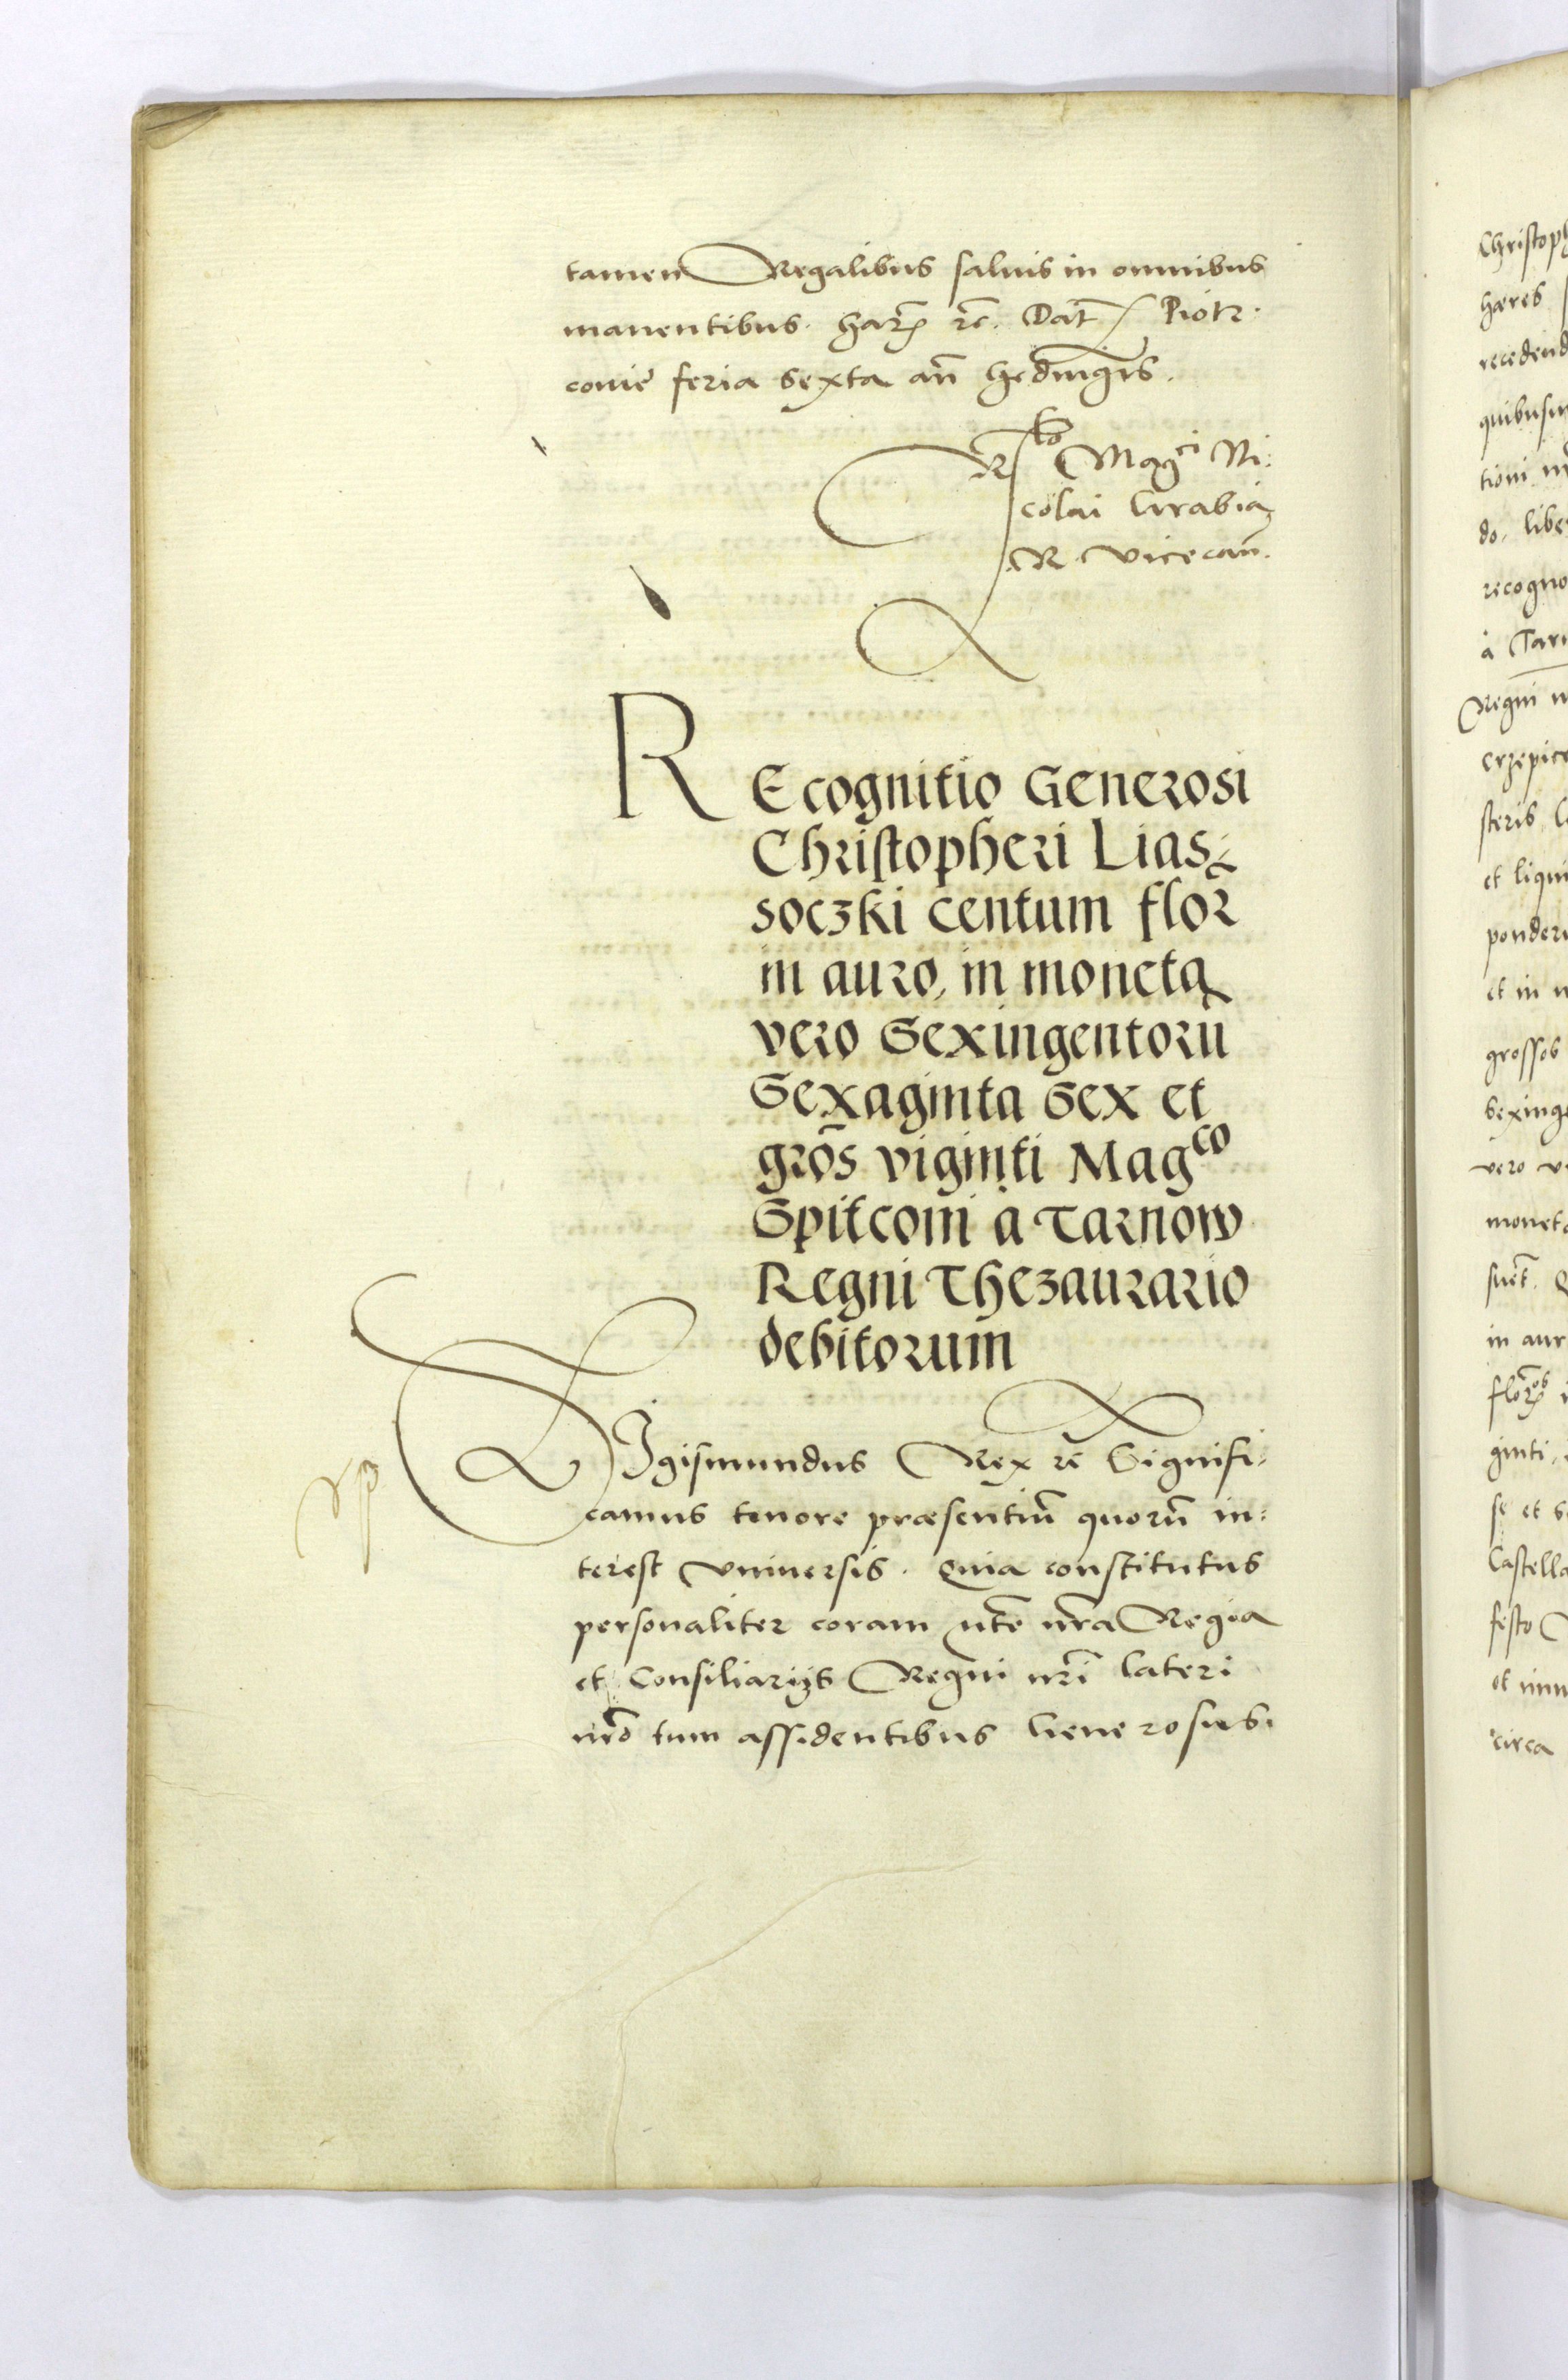 tamen Regalibus saluis in omnibus
manentibus. har̃ rc̃. Dat̃ Piotr:
couie feria sexta an̄ heduigis.
Rto Magci Ni:
colai Grabia
R. Vicecan̄.
REcognitio Generosi
Christopheri Lias:
soczki centum flor̃
in auro, in moneta
vero Sexingentorū
Sexaginta Sex et
grōs viginti Magco
Spitconi à Tarnow
Regni Thezaurario
debitorum
SIgismundus Rex rc̃ Signifi:
camus tenore præsentiū quorū in:
terest Vniuersis. Quia constitutus
personaliter coram nr̃a Regia
et Consiliarijs Regni nr̃i lateri
nr̃o tum assidentibus Generosus
Christoph
hæres
recedend
quibusui
do. libe
recogno
à Tarn
Regni n
crzepice
steris
et liqui
ponder
et in
grossos
sexinge
vero v
moneta
in aur
ginti
se et s
Castella
festo
circa